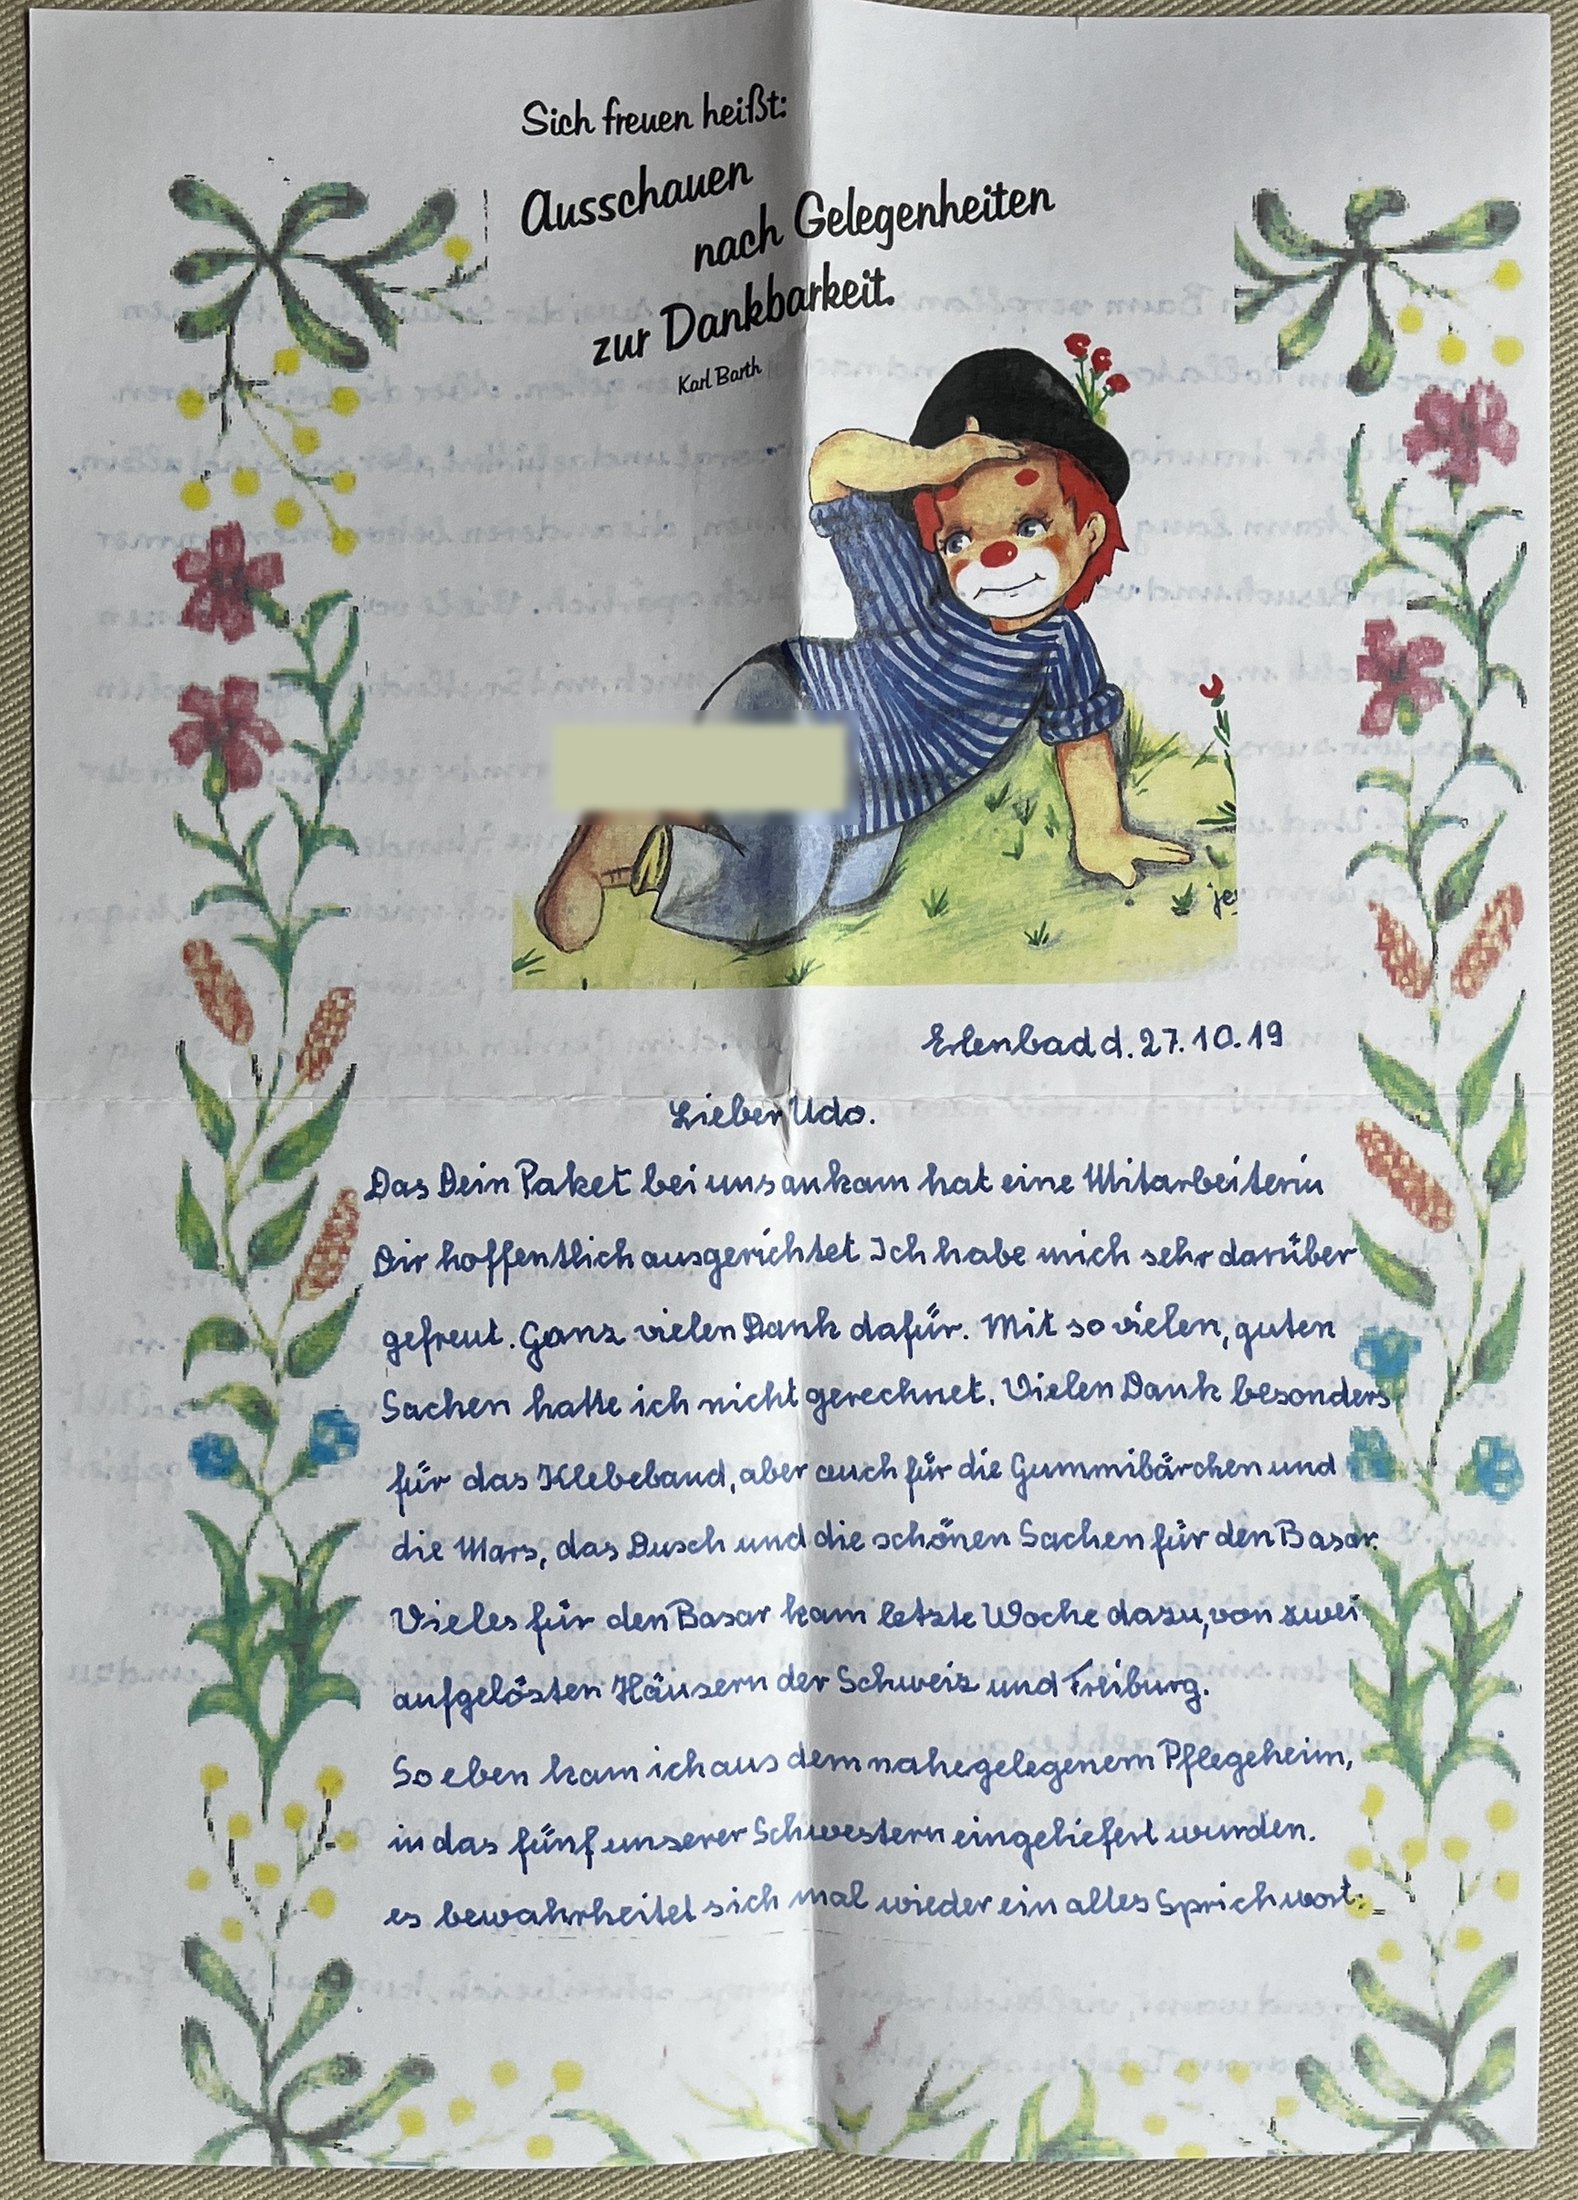 Sich freuen heißt:
Ausschauen
nach Gelegenheiten
zur Dankbarkeit.
Karl Barth
jes
Erlenbad d. 27.10.19
Lieber Udo.
Das Dein Paket bei uns ankam hat eine Mitarbeiterin
Dir hoffentlich ausgerichtet Ich habe mich sehr darüber
gefreut. Ganz vielen Dank dafür. Mit so vielen, guten
Sachen hatte ich nicht gerechnet. Vielen Dank besonders
für das Klebeband, aber auch für die Gummibärchen und
die Mars, das Dusch und die schönen Sachen für den Basar.
Vieles für den Basar kam letzte Woche dazu, von zwei
aufgelösten Häusern der Schweiz und Freiburg.
So eben kam ich aus dem nahegelegenem Pflegeheim,
in das fünf unserer Schwestern eingeliefert wurden.
es bewahrheitet sich mal wieder ein altes Sprichwort: